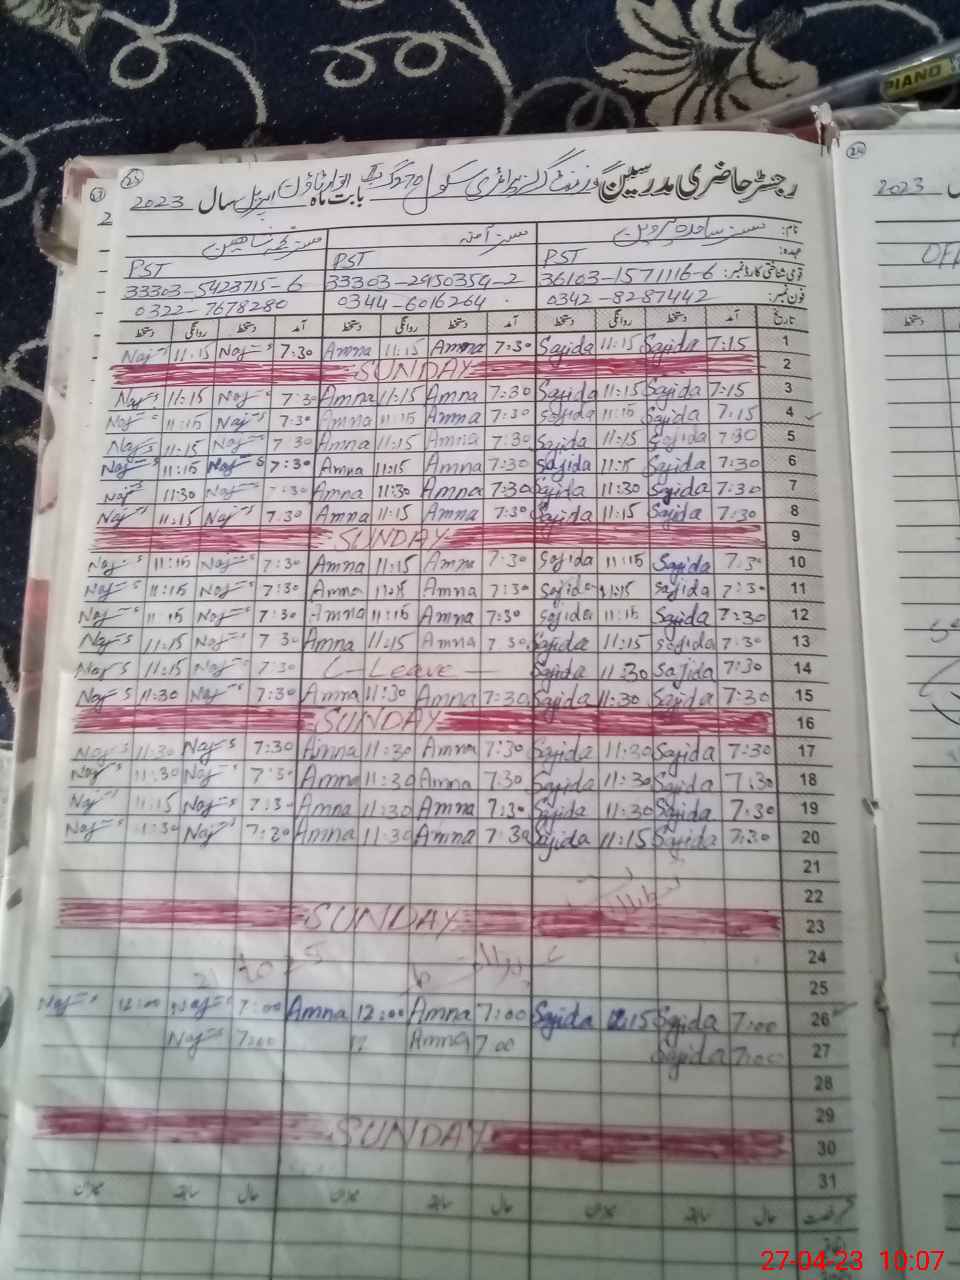 PIANO
25
24
23
2
رجسٹر حاضری مدرسین گورنمنٹ گرلز پرائمری سکول 70 بابت ماہ اپریل سال 2023
2023
نام:
عہدہ:
PST PST PST
قومی شناختی کارڈ نمبر: 36103-1571116-6 33303-2950354-2 33303-5423715-6
فون نمبر: 0342-8287442 0344-6016264 0322-7678280
تاریخ آمد دستخط روانگی دستخط آمد دستخط روانگی دستخط آمد دستخط روانگی دستخط
دستخط
Naj-s 11:15 Naj-s 7:30 Amna 11:15 Amna 7:30 Sajida 11:15 Sajida 7:15 1
SUNDAY 2
Naj-s 11:15 Naj-s 7:30 Amna 11:15 Amna 7:30 Sajida 11:15 Sajida 7:15 3
Naj-s 11:15 Naj-s 7:30 Amna 11:15 Amna 7:30 Sajida 11:15 Sajida 7:15 4
Naj-s 11:15 Naj-s 7:30 Amna 11:15 Amna 7:30 Sajida 11:15 Sajida 7:30 5
Naj-s 11:15 Naj-s 7:30 Amna 11:15 Amna 7:30 Sajida 11:15 Sajida 7:30 6
Naj-s 11:30 Naj-s 7:30 Amna 11:30 Amna 7:30 Sajida 11:30 Sajida 7:30 7
Naj-s 11:15 Naj-s 7:30 Amna 11:15 Amna 7:30 Sajida 11:15 Sajida 7:30 8
SUNDAY 9
Naj-s 11:15 Naj-s 7:30 Amna 11:15 Amna 7:30 Sajida 11:15 Sajida 7:30 10
Naj-s 11:15 Naj-s 7:30 Amna 11:15 Amna 7:30 Sajida 11:15 Sajida 7:30 11
Naj-s 11:15 Naj-s 7:30 Amna 11:15 Amna 7:30 Sajida 11:15 Sajida 7:30 12
Naj-s 11:15 Naj-s 7:30 Amna 11:15 Amna 7:30 Sajida 11:15 Sajida 7:30 13
Naj-s 11:15 Naj-s 7:30 C-Leave Sajida 11:30 Sajida 7:30 14
Naj-s 11:30 Naj-s 7:30 Amna 11:30 Amna 7:30 Sajida 11:30 Sajida 7:30 15
SUNDAY 16
Naj-s 11:30 Naj-s 7:30 Amna 11:30 Amna 7:30 Sajida 11:30 Sajida 7:30 17
Naj-s 11:30 Naj-s 7:30 Amna 11:30 Amna 7:30 Sajida 11:30 Sajida 7:30 18
Naj-s 11:15 Naj-s 7:30 Amna 11:30 Amna 7:30 Sajida 11:30 Sajida 7:30 19
Naj-s 11:30 Naj-s 7:30 Amna 11:30 Amna 7:30 Sajida 11:15 Sajida 7:30 20
21
22
SUNDAY 23
24
25
Naj-s 12:00 Naj-s 7:00 Amna 12:00 Amna 7:00 Sajida 12:15 Sajida 7:00 26
Naj-s 7:00 12 Amna 7:00 Sajida 7:00 27
28
29
SUNDAY 30
31
حال سابقہ میزان حال سابقہ میزان حال سابقہ میزان
27-04-23 10:07